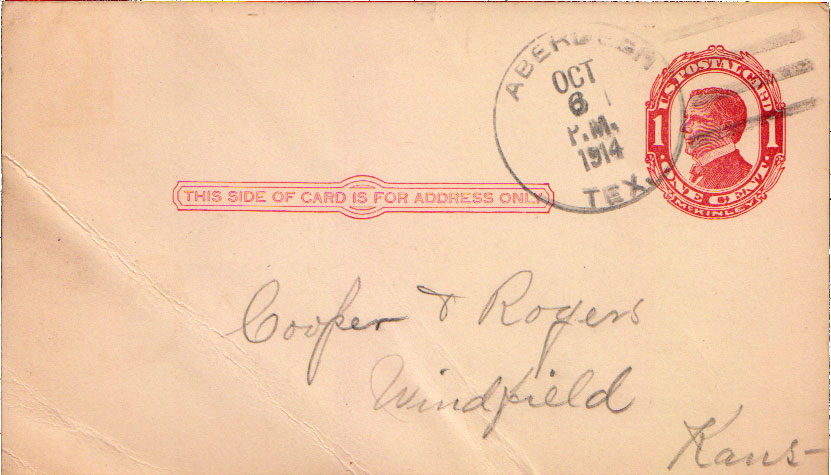 ABERDEEN
OCT
6
P.M.
1914
TEX.
U.S. POSTAL CARD
1 1
ONE CENT
McKINLEY
THIS SIDE OF CARD IS FOR ADDRESS ONLY
Cooper & Rogers
Windfield
Kans-